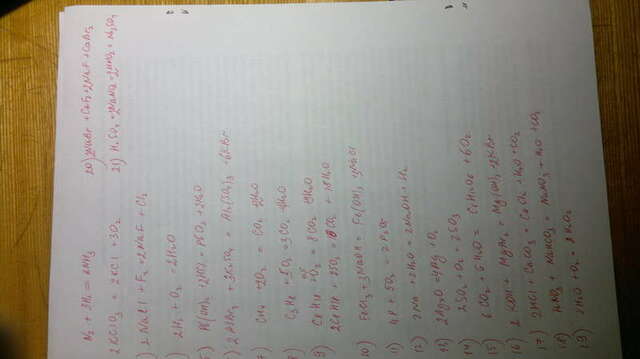 N₂ + 3H₂ = 2NH₃
2KClO₃ = 2KCl + 3O₂
) 2NaCl + F₂ = 2NaF + Cl₂
) 2H₂ + O₂ = 2H₂O
) 2AlBr₃ + 3K₂SO₄ = Al₂(SO₄)₃ + 6KBr
7) CH₄ + 2O₂ = CO₂ + 2H₂O
8) C₃H₈ + 5O₂ = 3CO₂ + 4H₂O
9)
10) FeCl₃ + 3NaOH = Fe(OH)₃ + 3NaCl
11) 4P + 5O₂ = 2P₂O₅
12) 2Na + 2H₂O = 2NaOH + H₂
13) 2Ag₂O = 4Ag + O₂
14) 2SO₂ + O₂ = 2SO₃
15) 6CO₂ + 6H₂O = C₆H₁₂O₆ + 6O₂
16) 2KOH + MgBr₂ = Mg(OH)₂ + 2KBr
17) 2HCl + CaCO₃ = CaCl₂ + H₂O + CO₂
18) HNO₃ + NaHCO₃ = NaNO₃ + H₂O + CO₂
19) 2H₂O + O₂ = 2H₂O₂
20) 2NaBr + CaF₂ = 2NaF + CaBr₂
21) H₂SO₄ + 2NaNO₂ = 2HNO₂ + Na₂SO₄